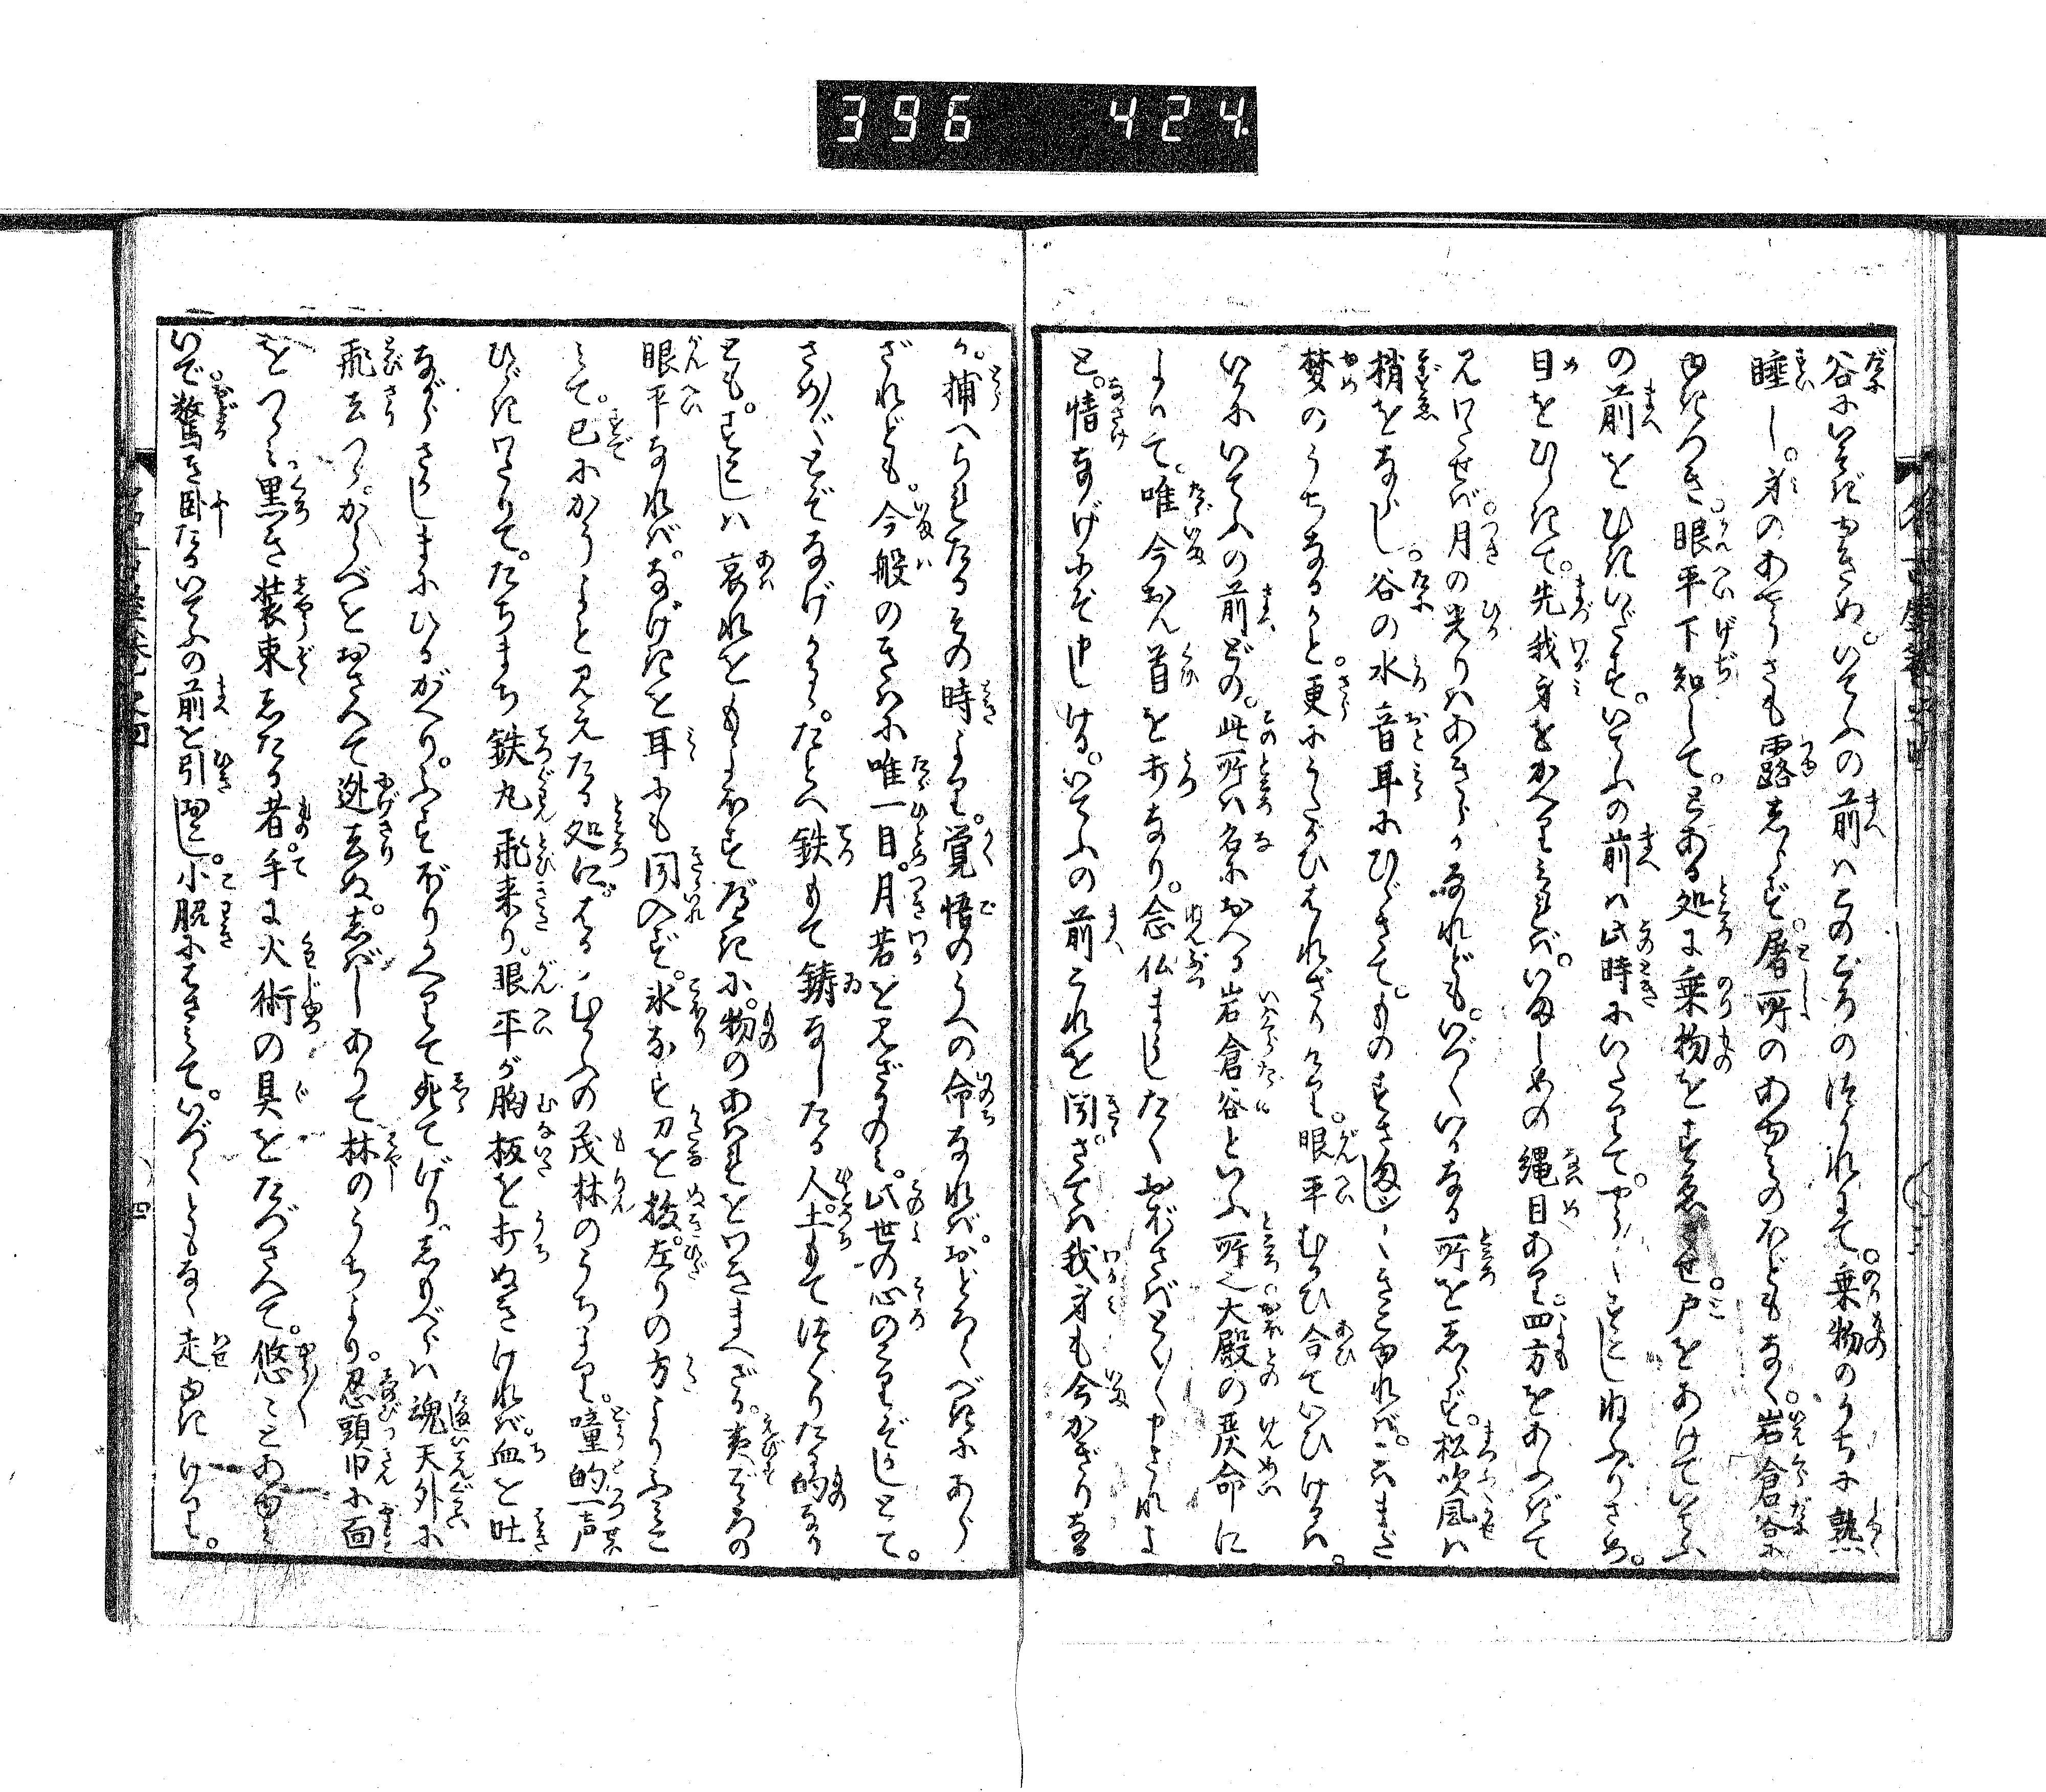 396 424
谷にいそぎゆきぬ。いてふの前はこのごろのつかれにて。乗物のうちに熟
睡し。身のあやうさも露しらず。屠所のあゆみのほどもなく。岩倉谷に
ゆきつき。眼平下知して。弓ある処に乗物をすゑさせ。戸をあけていてふ
の前をひきいだす。いてふの前は此時にいたりて。やう〳〵すこしねふりさめ。
目をひらきて。先我身をかへりみれば。いましめの縄目あり。四方をあふぎて
見わたせば。月の光りはあきらかなれども。いづくいかなる所をしらず。松吹風は
梢をならし。谷の水音耳にひゞきて。ものすさまじくきこゆれば。こはまだ
夢のうちなるかと。更にうたがひはれざりけり。眼平むかひ合ていひけるは。
いかにいてふの前どの。此所は名におへる岩倉谷といふ所也大殿の厳命に
よりて。唯今おん首を打なり。念仏まうしたくおぼさばとく〳〵申されよ
と。情なげにぞ申しける。いてふの前これを聞。さては我身も今かぎりな
り。捕へられたるその時より。覚悟のうへの命なれば。おどろくべきにあら
ざれども。今般のきはに唯一目。月若を見ざるのみ。此世の心のこりぞかしとて。
さめ〴〵とぞなげかるゝ。たとへ鉄もて鋳なしたる人土もてつくりたる的なり
とも。すこしは哀れをもよほすべきに。物のあはれをいきまへざる。夷ごゝろの
眼平なれば。なげきを耳にも聞入ず。氷なす刀を抜。左りの方よりふみこ
みて。已にかうよと見えたる処に。はるかむかふの茂林のうちより。噇的一声
ひゞきわたりて。たちまち鉄丸飛来り。眼平が胸板を打ぬきければ。血を吐
ながらさかしまにひるがへり。ふすぼりかへりて死てげり。しもべらは魂天外に
飛去つゝ。からべをおさへて逃去ぬ。しばしありて林のうちより。忍頭巾に面
をつゝみ。黒き装束したる者。手に火術の具をたづさへて。悠々とあゆみ
いで。驚き臥たるいてふの前を引起し。小脇にはさみて。いづくともなく走ゆきけり。
四